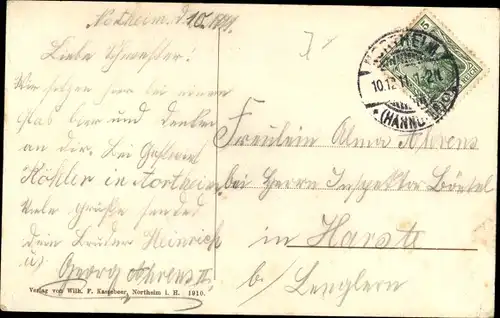 Northeim d. 10.
Liebe Schwester!
Wir sitzen hier bei einem
Glas Bier und denken
an dir. Bei Gastwirt
Köhler in Northeim
Viele Grüße sendet
Dein Bruder Heinrich
u.
Georg Ahrens II.
Verlag von Wilh. F. Kassebeer, Northeim i. H. 1910.
NORTHEIM
10.12.11. 7-2N
(HANNOVER)
5
Fräulein Alma Ahrens
bei Herrn Inspektor Börtel
in Harste
b/ Lenglern